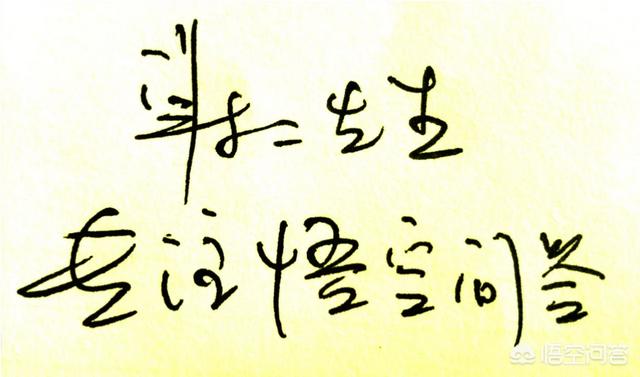 先生
专注悟空问答
悟空问答